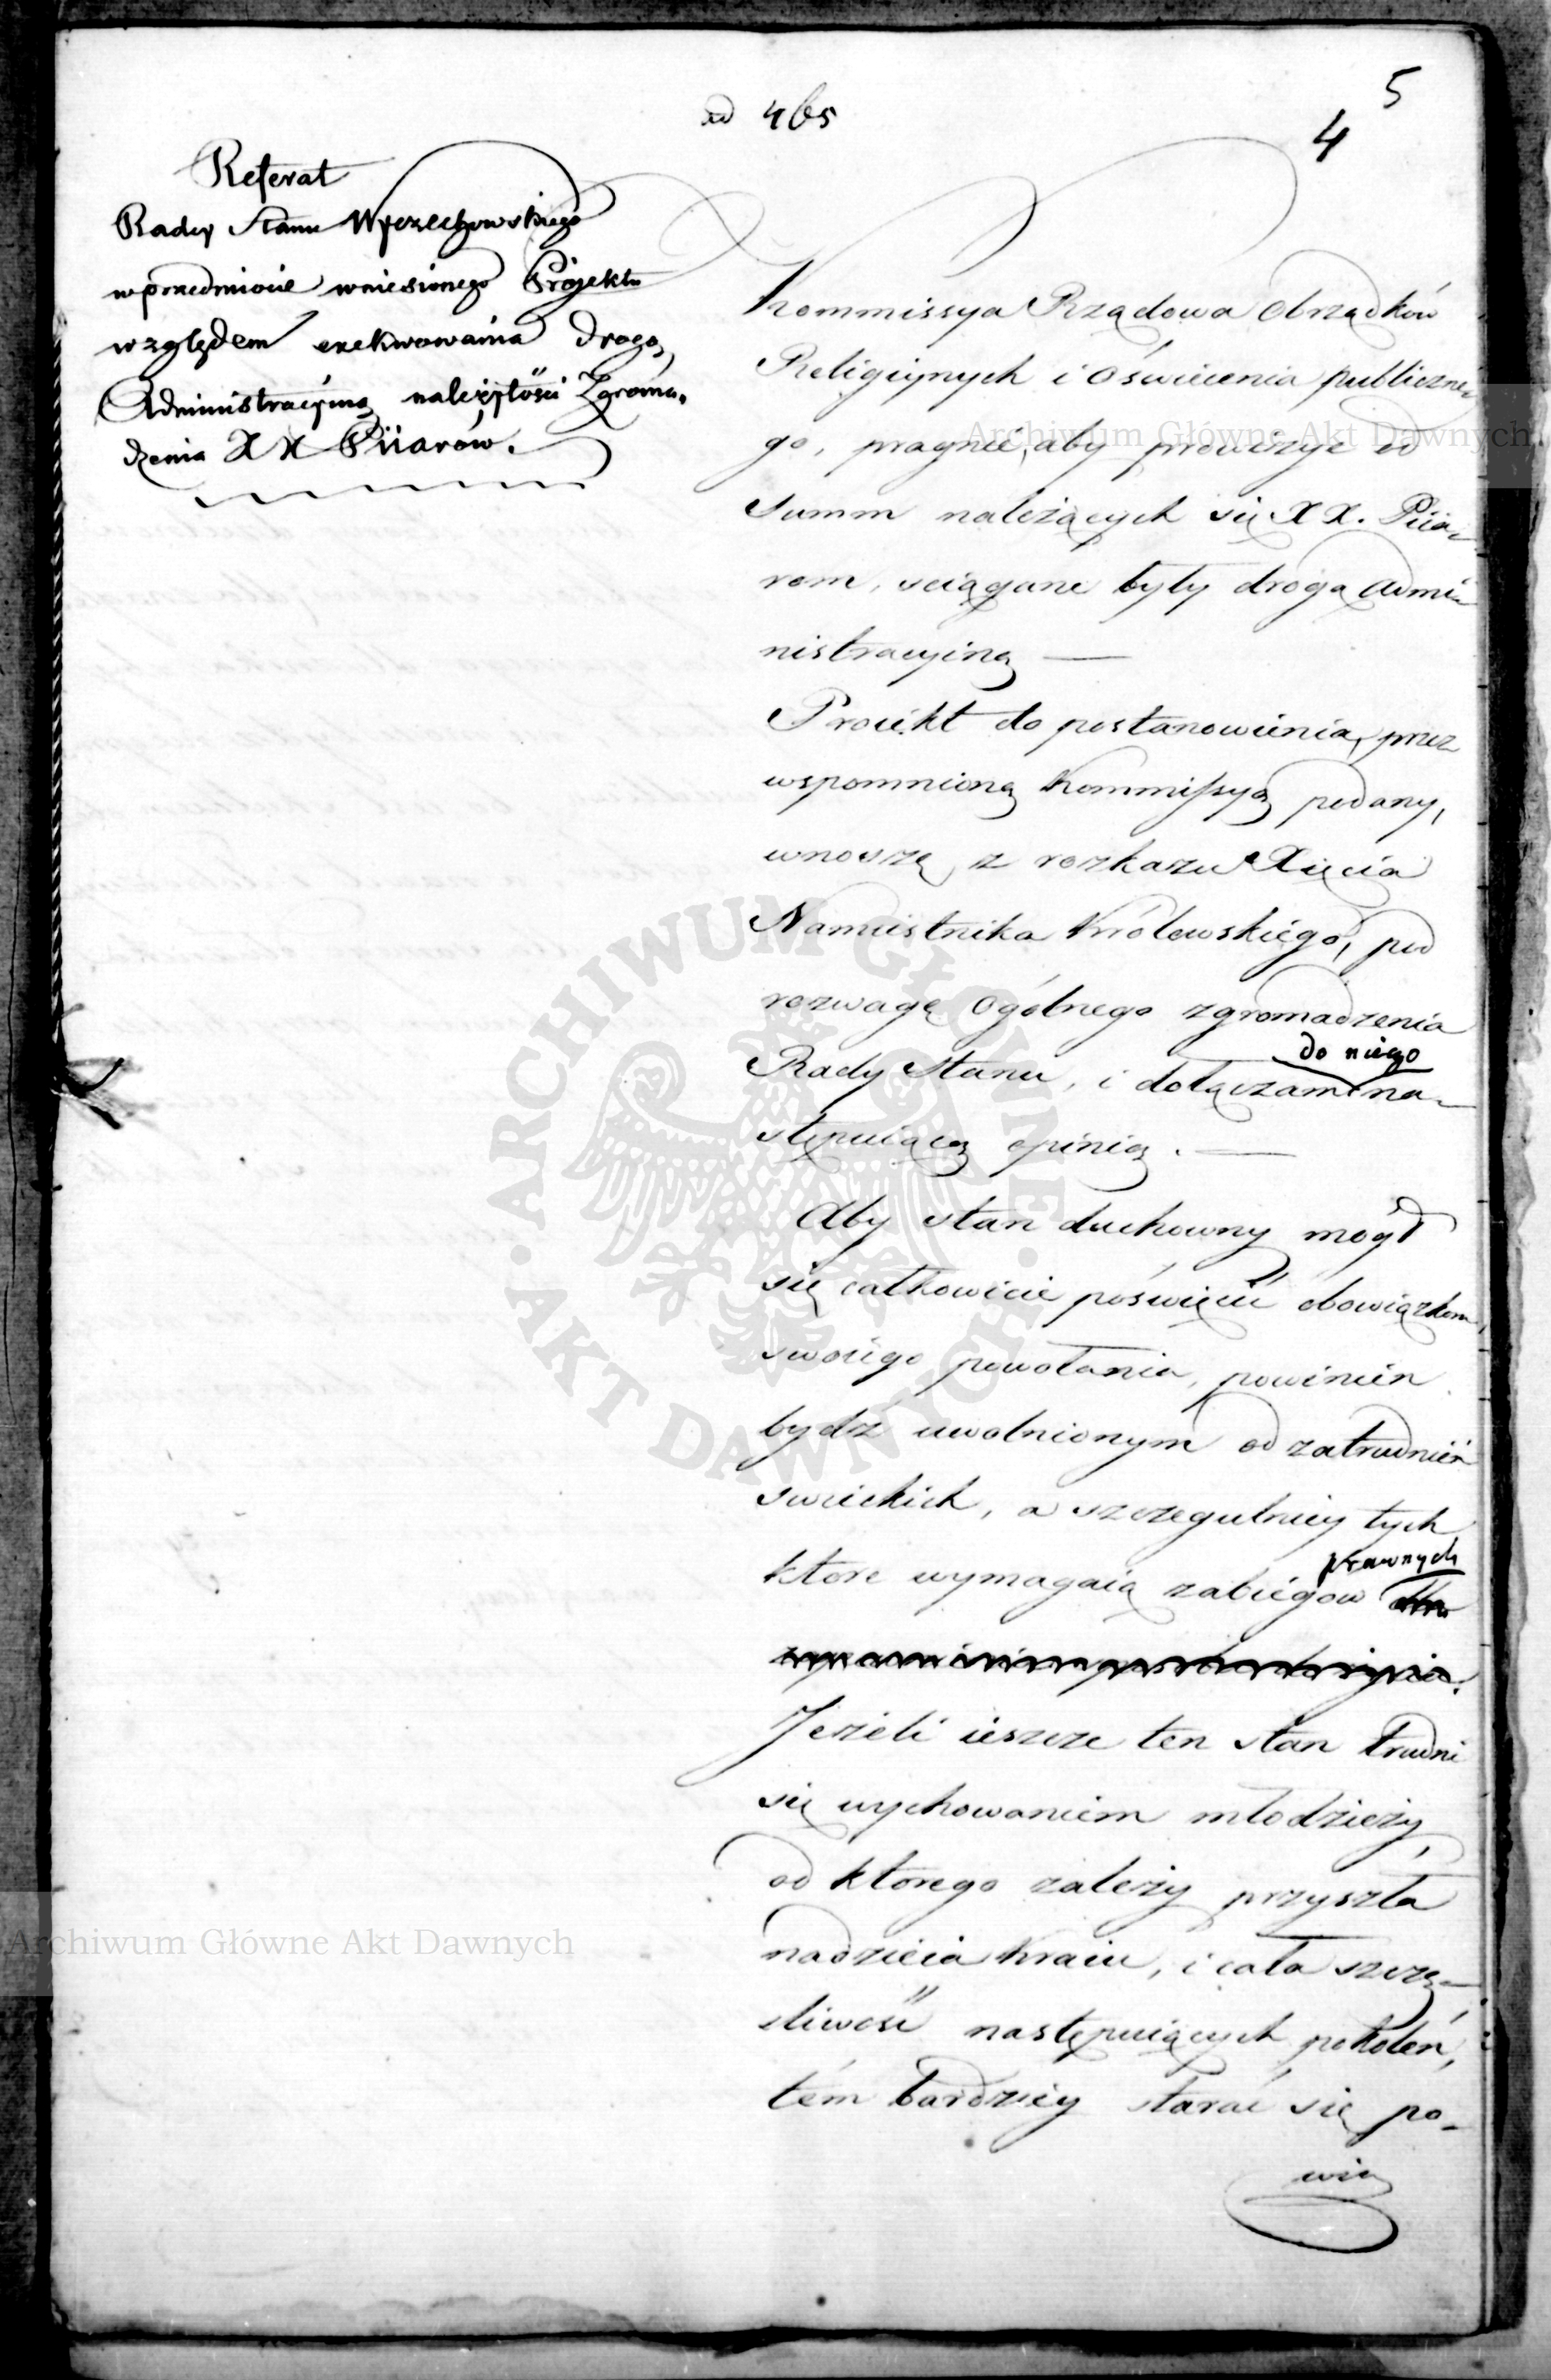 ad 465
5
4
Referat
Radcy Stanu Wyczechowskiego
w przedmiocie wniesionego Projektu
względem exekwowania drogą
Administracyiną należytości Zgroma-
dzenia XX Piiarów.
Kommissya Rządowa Obrządków
Religiynych i Oświecenia publiczne-
go, pragnie, aby prowizye od
summ należących się XX. Piia-
rom, sciągane były drogą admi-
nistracyiną —
Proiekt do postanowienia, przez
wspomnioną Kommissyą podany,
wnoszę z rozkazu Xięcia
Namiestnika Królewskiego, pod
rozwagę Ogólnego zgromadzenia
do niego
Rady Stanu, i dołączam na-
stępuiącą opinią. —
Aby stan duchowny mogł
się całkowicie poświęcić obowiązkom,
swoiego powołania, powinien
bydź uwolnionym od zatrudnień
swieckich, a szczegulniey tych
prawnych
ktore wymagaią zabiegow
Jeżeli ieszcze ten stan trudni
się wychowaniem młodzieży,
od ktorego zależy przyszła
nadzieia Kraiu, i cała szczę-
śliwość następuiących pokoleń,
tém bardziey starać się po-
win
ARCHIWUM GŁÓWNE AKT DAWNYCH
Archiwum Główne Akt Dawnych
Archiwum Główne Akt Dawnych